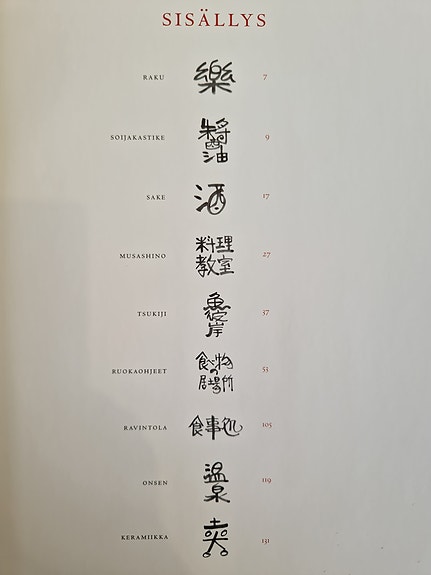 SISÄLLYS
RAKU 樂 7
SOIJAKASTIKE 醤油 9
SAKE 酒 17
MUSASHINO 料理教室 27
TSUKIJI 魚彼岸 37
RUOKAOHJEET 食べ物の居場所 53
RAVINTOLA 食事処 105
ONSEN 温泉 119
KERAMIIKKA 131